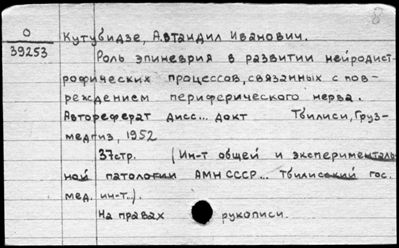 8
О
39253
Кутубидзе, Автандил Иванович.
Роль эпиневрия в развитии нейродист-
рофических процессов, связанных с пов-
реждением периферического нерва.
Автореферат дисс... докт Тбилиси, Груз-
медгиз, 1952
37стр. (Ин-т общей и эксперименталь-
ной патологии АМН СССР... Тбилисский гос.
мед. ин-т..).
На правах рукописи.